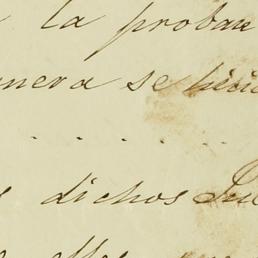 la proban
nera se hici
. . . . .
dichos Ju